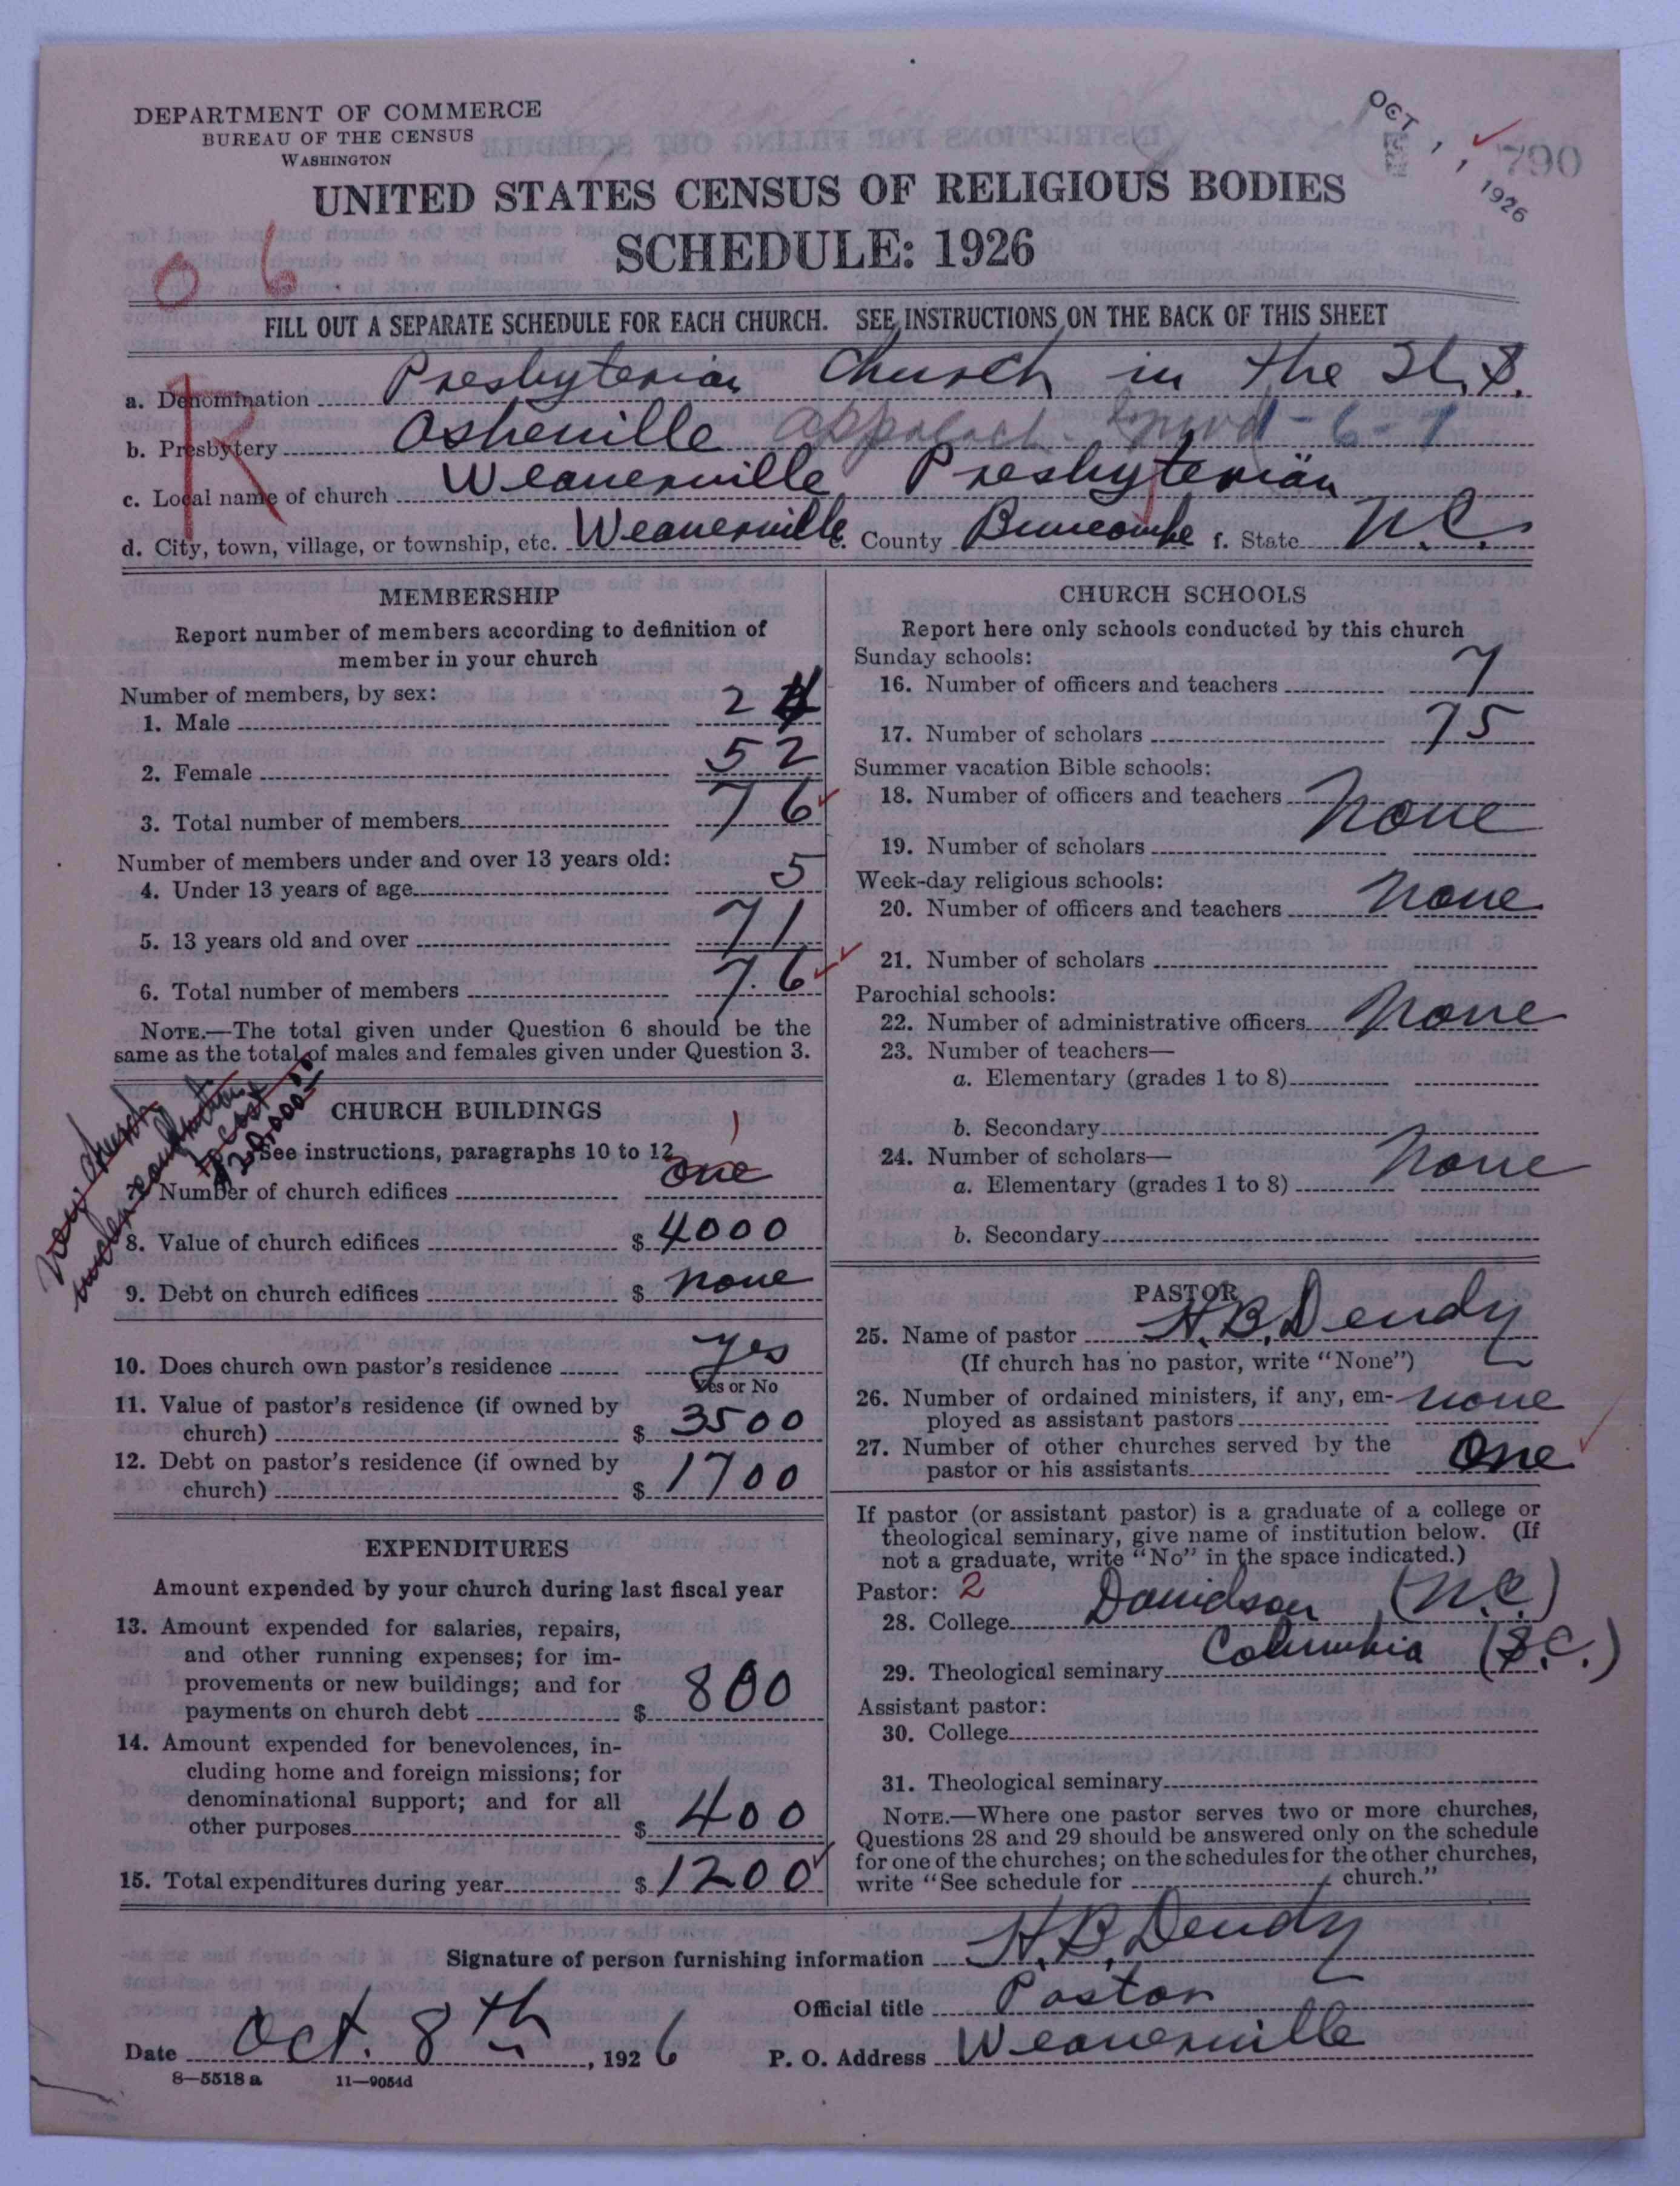 DEPARTMENT OF COMMERCE
BUREAU OF THE CENSUS
WASHINGTON
OCT 11 1926
790
UNITED STATES CENSUS OF RELIGIOUS BODIES
SCHEDULE: 1926
0 6
R
FILL OUT A SEPARATE SCHEDULE FOR EACH CHURCH. SEE INSTRUCTIONS ON THE BACK OF THIS SHEET
a. Denomination Presbyterian Church in the U.S.
b. Presbytery Asheville Appalach. 1-6-1
c. Local name of church Weaverville Presbyterian
d. City, town, village, or township, etc. Weaverville e. County Buncombe f. State N.C.
MEMBERSHIP
Report number of members according to definition of
member in your church
Number of members, by sex:
1. Male 24
2. Female 52
3. Total number of members 76
Number of members under and over 13 years old:
4. Under 13 years of age 5
5. 13 years old and over 71
6. Total number of members 76
NOTE.—The total given under Question 6 should be the
same as the total of males and females given under Question 3.
New church
under construction
to cost
$20,000.00
CHURCH BUILDINGS
See instructions, paragraphs 10 to 12
7. Number of church edifices one 1
8. Value of church edifices $ 4000
9. Debt on church edifices $ none
10. Does church own pastor's residence yes
Yes or No
11. Value of pastor's residence (if owned by
church) $ 3500
12. Debt on pastor's residence (if owned by
church) $ 1700
EXPENDITURES
Amount expended by your church during last fiscal year
13. Amount expended for salaries, repairs,
and other running expenses; for im-
provements or new buildings; and for
payments on church debt $ 800
14. Amount expended for benevolences, in-
cluding home and foreign missions; for
denominational support; and for all
other purposes $ 400
15. Total expenditures during year $ 1200
CHURCH SCHOOLS
Report here only schools conducted by this church
Sunday schools:
16. Number of officers and teachers 7
17. Number of scholars 75
Summer vacation Bible schools:
18. Number of officers and teachers None
19. Number of scholars
Week-day religious schools:
20. Number of officers and teachers None
21. Number of scholars
Parochial schools:
22. Number of administrative officers None
23. Number of teachers—
a. Elementary (grades 1 to 8)
b. Secondary
24. Number of scholars—
a. Elementary (grades 1 to 8) None
b. Secondary
PASTOR
25. Name of pastor H.B. Dendy
(If church has no pastor, write "None")
26. Number of ordained ministers, if any, em-
ployed as assistant pastors none
27. Number of other churches served by the
pastor or his assistants One
If pastor (or assistant pastor) is a graduate of a college or
theological seminary, give name of institution below. (If
not a graduate, write "No" in the space indicated.)
Pastor: 2
28. College Davidson (N.C.)
29. Theological seminary Columbia (S.C.)
Assistant pastor:
30. College
31. Theological seminary
NOTE.—Where one pastor serves two or more churches,
Questions 28 and 29 should be answered only on the schedule
for one of the churches; on the schedules for the other churches,
write "See schedule for church."
Signature of person furnishing information H.B. Dendy
Official title Pastor
Date Oct. 8th, 1926 P. O. Address Weaverville
8—5518 a 11—9054d